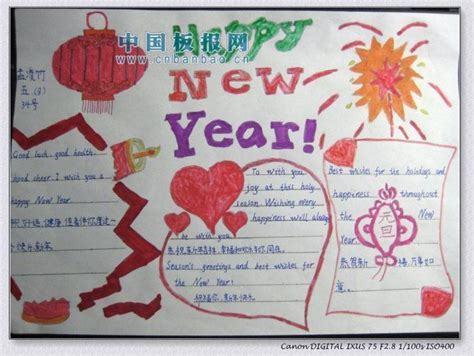 中国板报网
www.cnbanbao.cn
Happy
New
Year!
五.(8)
34号
Good luck, good health,
good cheer. I wish you a
happy New Year.
To wish you
joy at this holy
season. Wishing every
happiness will always
be with you.
Season's greetings and best wishes for
the New Year!
Best wishes for the holidays and
happiness throughout
the New
Year.
元旦
恭贺新
Canon DIGITAL IXUS 75 F2.8 1/100s ISO400